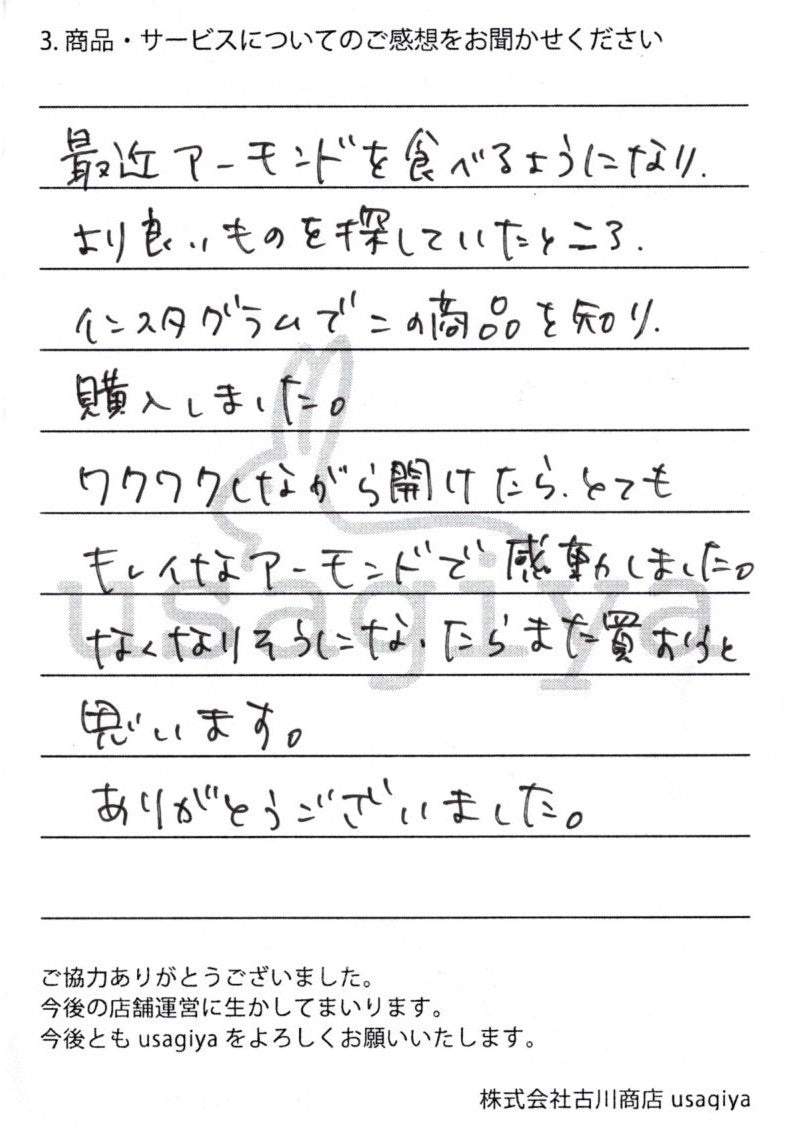 3. 商品・サービスについてのご感想をお聞かせください
最近アーモンドを食べるようになり、
より良いものを探していたところ、
インスタグラムでこの商品を知り、
購入しました。
ワクワクしながら開けたら、とても
キレイなアーモンドで感動しました。
なくなりそうになったらまた買おうと
思います。
ありがとうございました。
usagiya
ご協力ありがとうございました。
今後の店舗運営に生かしてまいります。
今後とも usagiya をよろしくお願いいたします。
株式会社古川商店 usagiya